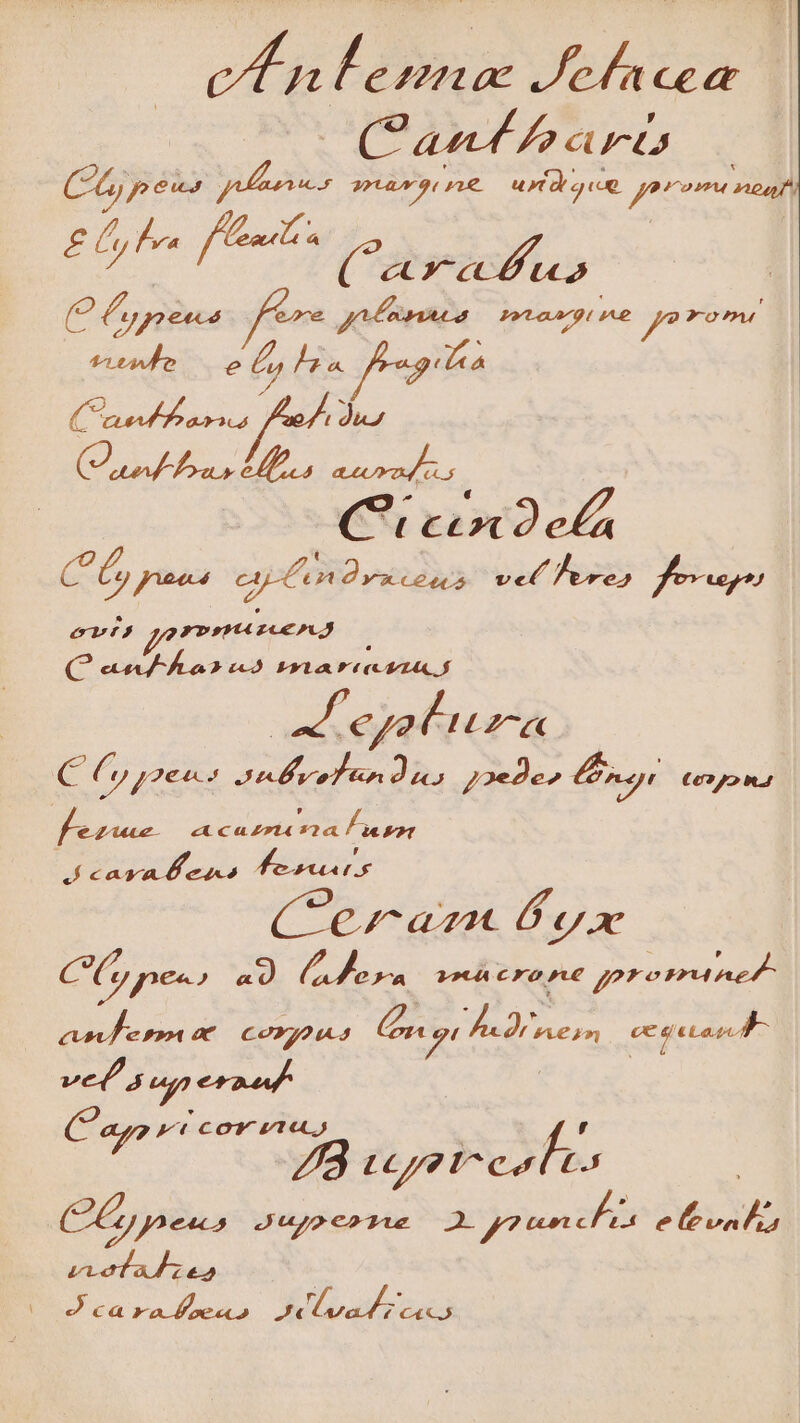 Antennæ Setaceæ
Cantharis
Clypeus planus margine undique prominent
Elytra flexilia
Carabus
Clypeus fere planus margine promi
nente elytra fragilia
Cantharus foetidus
Cantharellus auratus
Cicindela
Clypeus cylindraceus vel teres forceps
ovis prominens
Cantharus marianus
Leptura
Clypeus subrotundus pedes longi corpus
tenue acuminatum
Scarabeus tenuis
Cerambyx
Clypeus ad latera mucrone prominet
antennæ corpus longitudinem æquant
vel superant
Capricornus
Buprestis
Clypeus superne 2 punctis elevatis
notatus
Scarabæus silvaticus